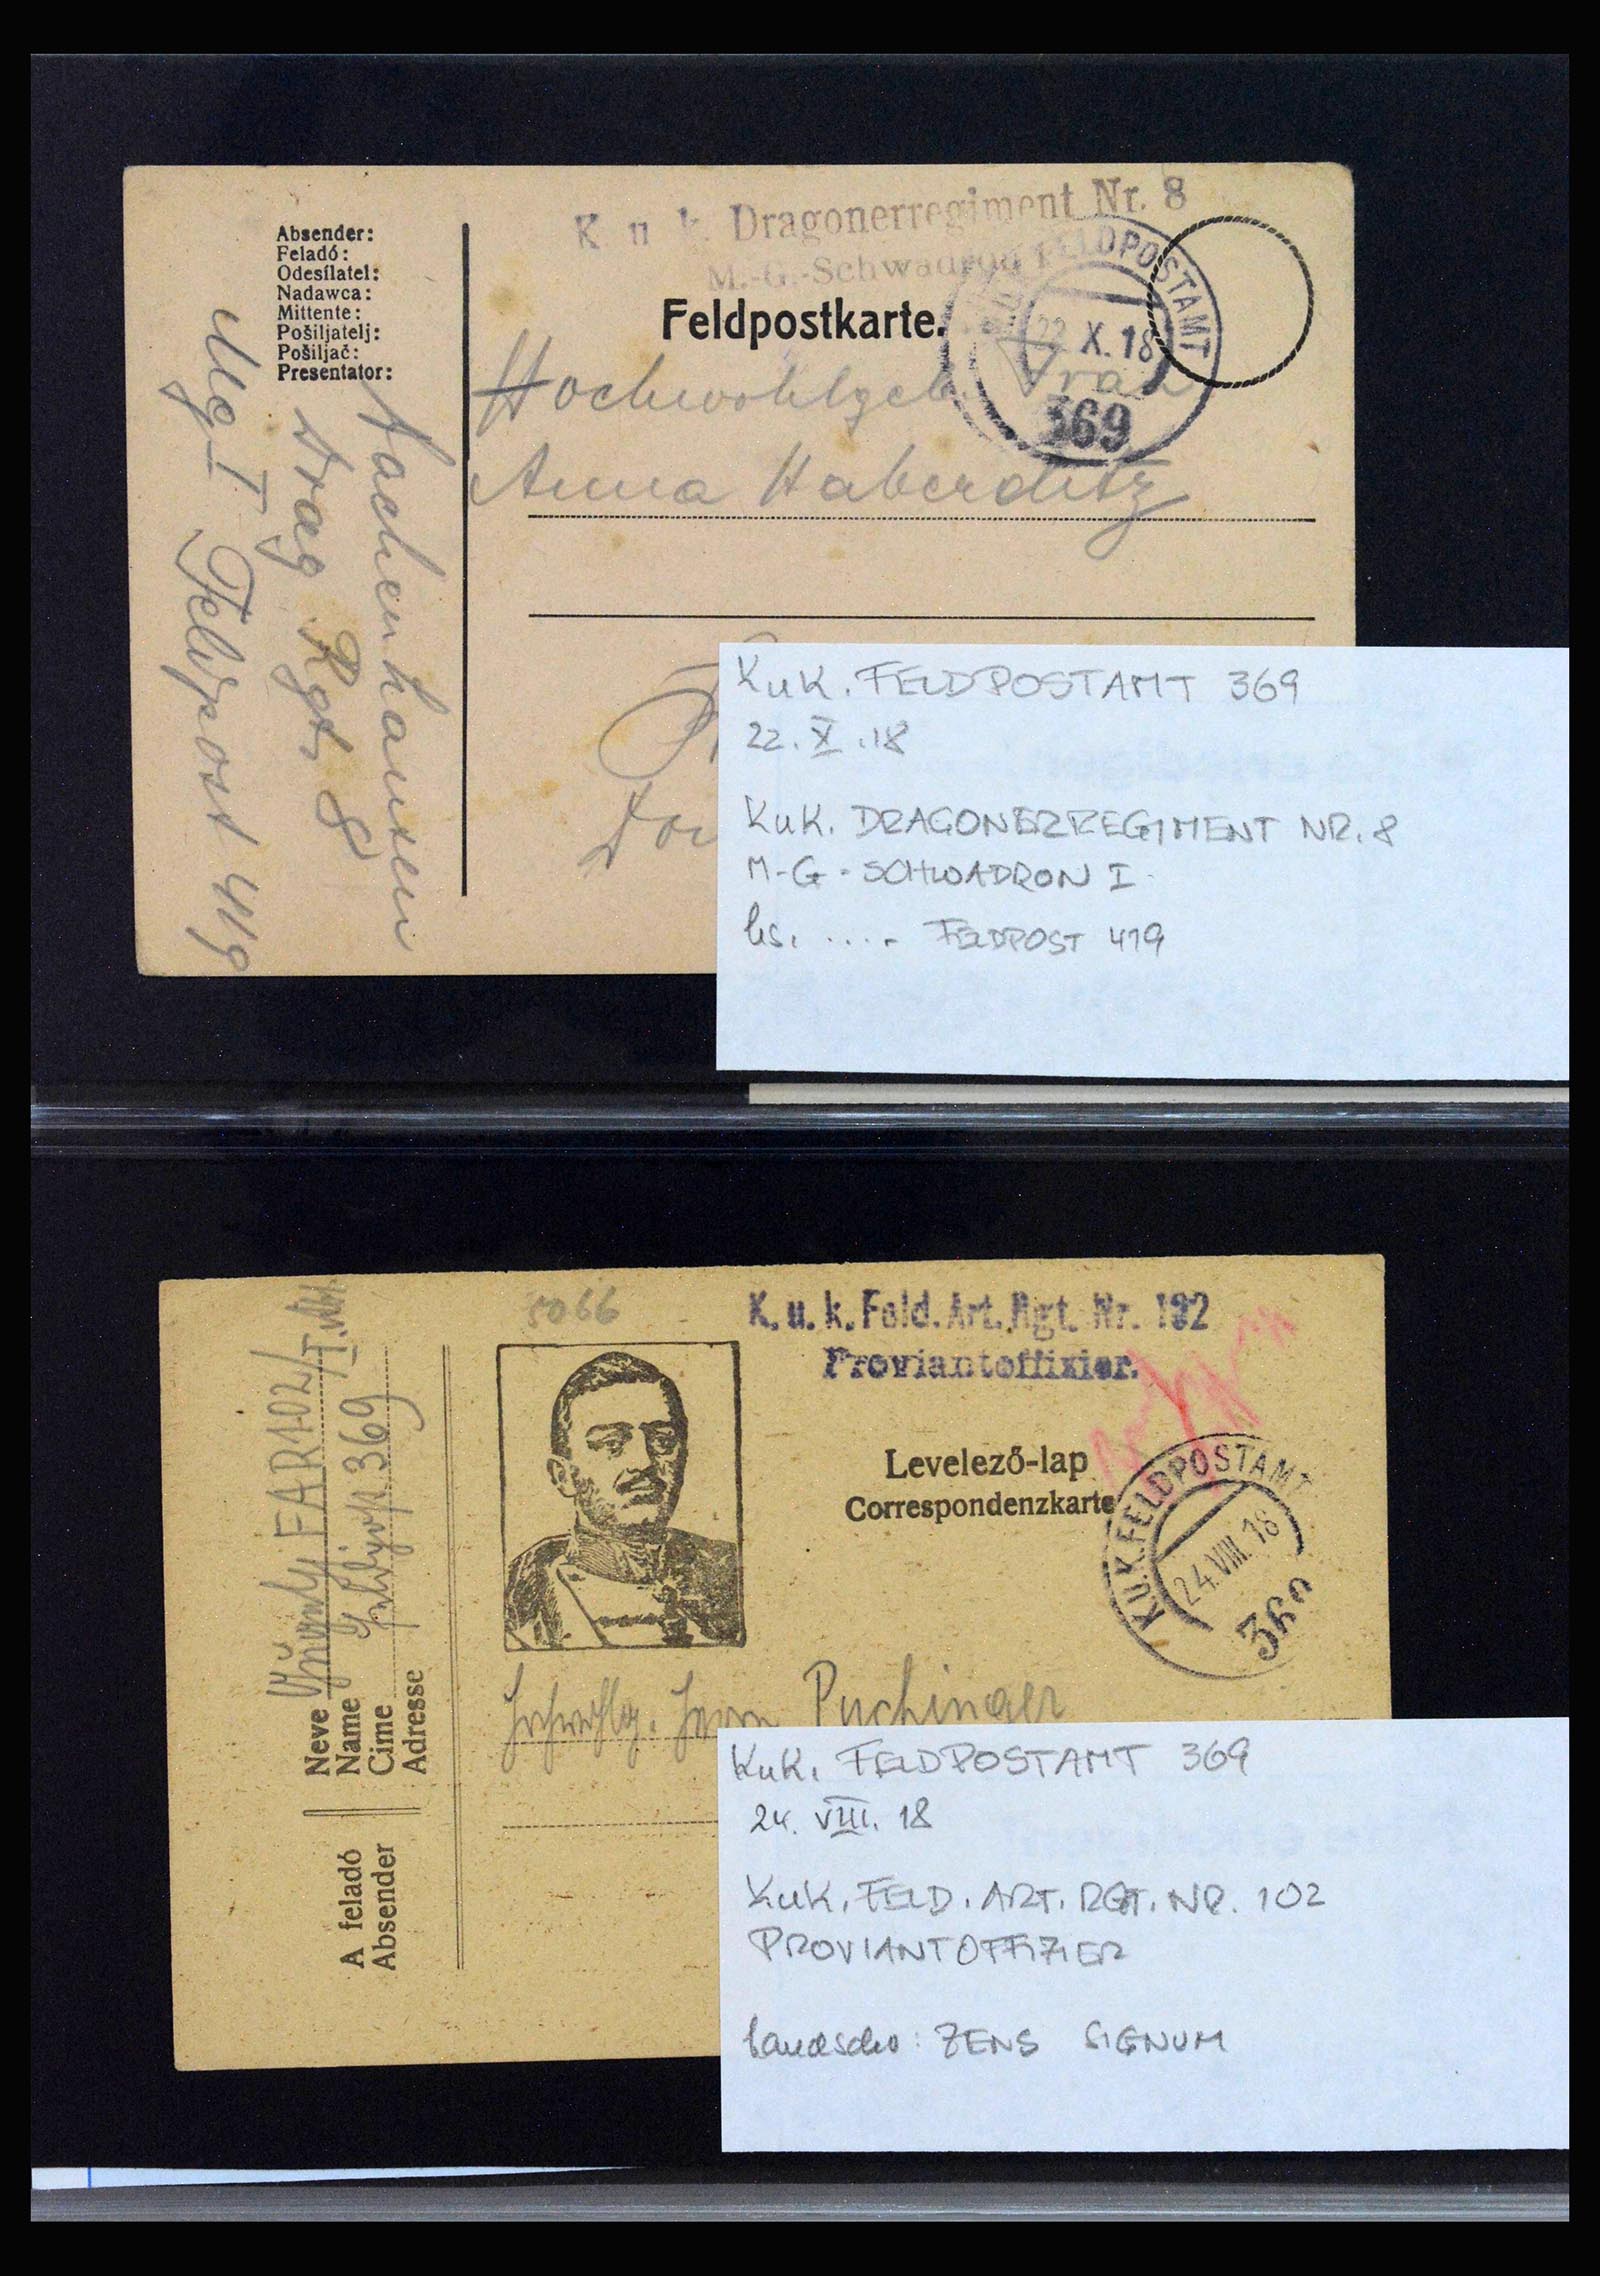 K. u. k. Dragonerregiment Nr. 8
M.-G.-Schwadron I
K.u.K. FELDPOSTAMT
22 X. 18
369
Absender:
Feladó:
Odesílatel:
Nadawca:
Mittente:
Pošiljatelj:
Pošiljač:
Presentator:
Feldpostkarte.
Hochwohlgeb. Frau
Anna Haberditz
Drag Rgt, 8
Feldpost 419
KuK. FELDPOSTAMT 369
22. X .18
KuK. DRAGONERREGIMENT NR. 8
M-G-SCHWADRON I
hs. .... FELDPOST 419
5066
K. u. k. Feld. Art. Rgt. Nr. 102
Proviantoffizier.
Levelező-lap
Correspondenzkarte
K.u.K. FELDPOSTAMT
24. VIII. 18
369
FAR 102/
369
Neve
Name
Cime
Adresse
A feladó
Absender
Herrn Puchinger
KuK. FELDPOSTAMT 369
24. VIII. 18
KuK. FELD. ART. RGT. NR. 102
PROVIANTOFFIZIER
handschr: ZENS SIGNUM